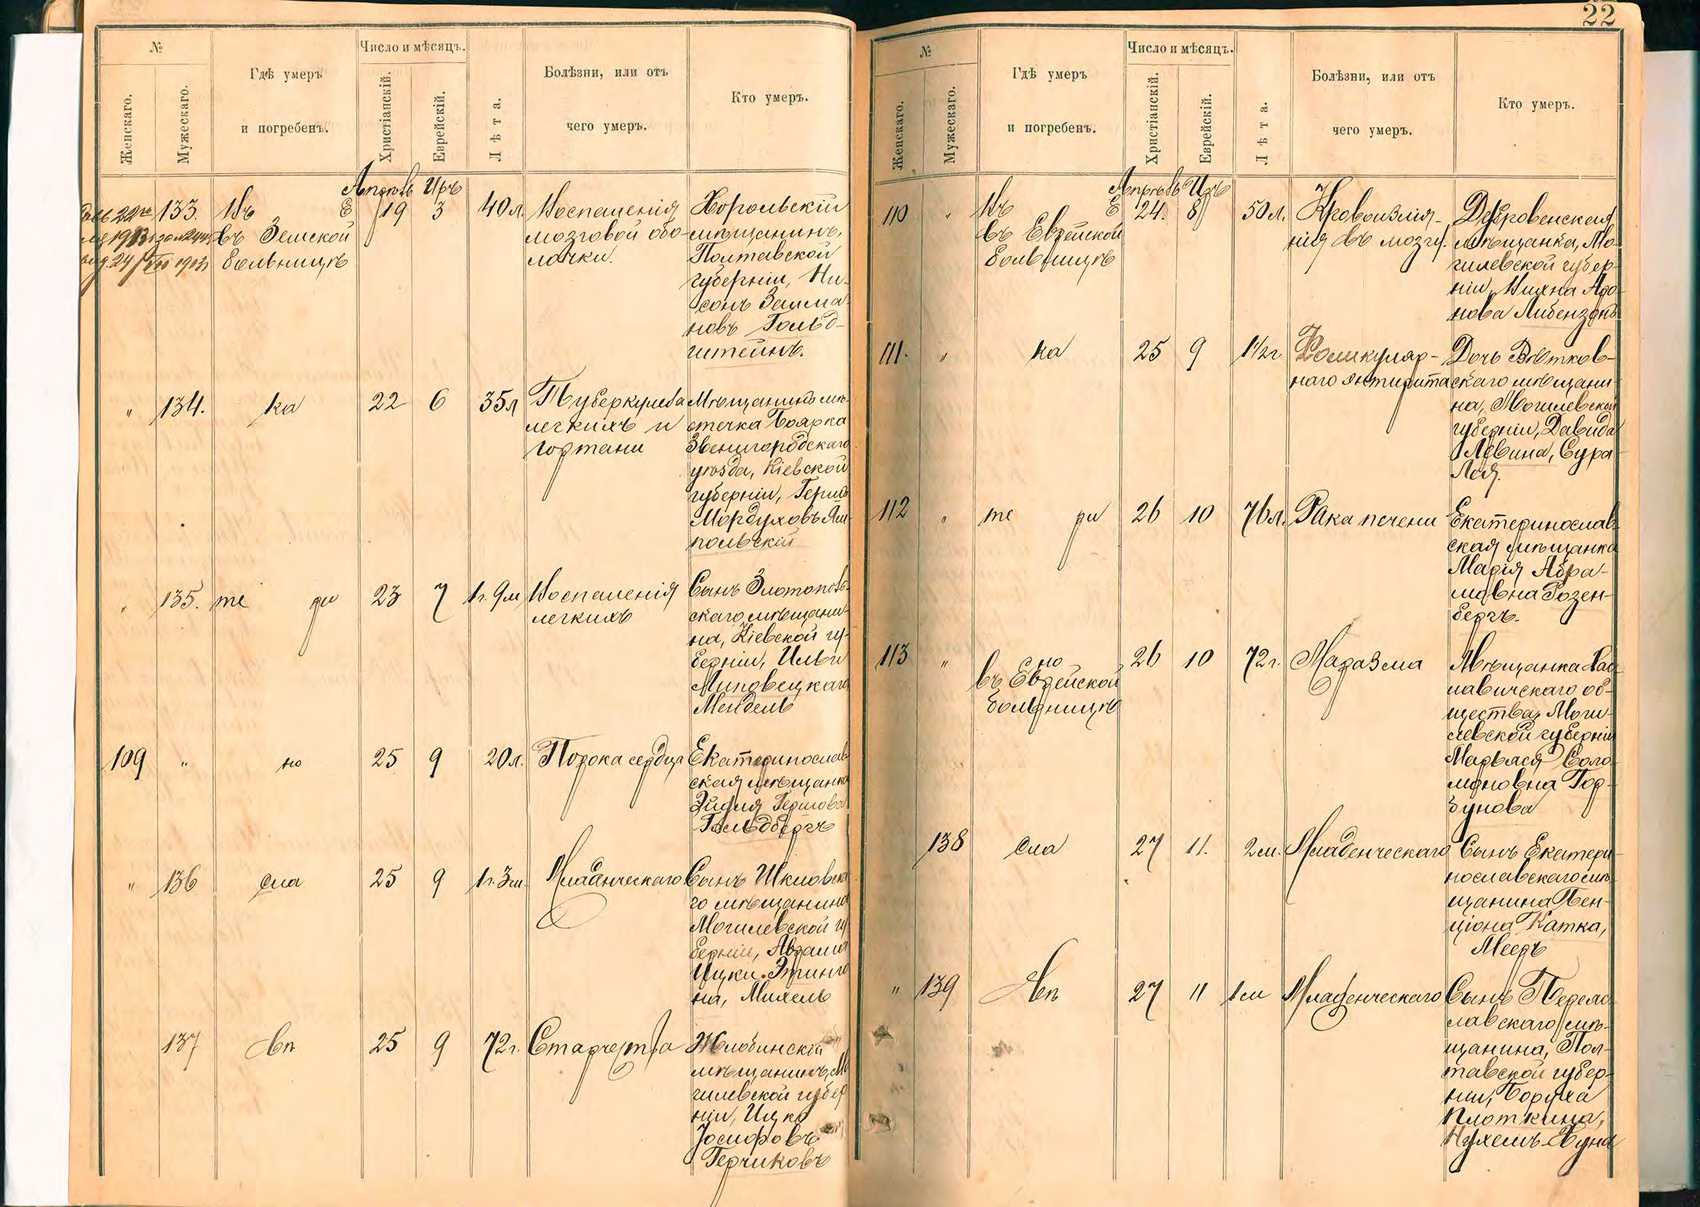 №
Женскаго.
Мужескаго.
Гдѣ умеръ
и погребенъ.
Число и мѣсяцъ.
Христіанскій.
Еврейскій.
Лѣта.
Болѣзни, или отъ
чего умеръ.
Кто умеръ.
133.
въ Земской
больницѣ
19
3
40 л.
Воспаленія
мозговой обо-
лочки.
Хорольскій
мѣщанинъ,
Полтавской
губерніи, Ни-
сонъ Залма-
новъ Гольд-
штейнъ.
"
134.
ка
22
6
35 л
Туберкулеза
легкихъ и
гортани
Мѣщанинъ мѣ-
стечка Боярка
Звенигородскаго
уѣзда, Кіевской
губерніи, Герш
Мордуховъ Ям-
польскій
"
135.
те ри
23
7
1 г. 9 м
Воспаленія
легкихъ
Сынъ Златополь-
скаго мѣщани-
на, Кіевской гу-
берніи, Ильи
Липовецкаго
Мендель
109
"
но
25
9
20 л.
Порока сердца
Екатеринослав
ская мѣщанка
Гершова
Гольдбергъ
"
136
сла
25
9
1 г. 3 м.
Младенческаго
Сынъ Шкловска
го мѣщанина
Могилевской гу
берніи, Авраама
Ицки Этинго
на, Михель
137
Вп
25
9
72 г.
Старчества
Жлобинскій
мѣщанинъ, Мо
гилевской губер
ніи, Ицко
Іосифовъ
Герчиковъ
22
№
Женскаго.
Мужескаго.
Гдѣ умеръ
и погребенъ.
Число и мѣсяцъ.
Христіанскій.
Еврейскій.
Лѣта.
Болѣзни, или отъ
чего умеръ.
Кто умеръ.
110
"
въ Еврейской
больницѣ
24.
8
50 л.
Кровоизлія-
нія въ мозгу.
Дубровенская
мѣщанка, Мо-
гилевской губер-
ніи,
нова Либензонъ
111.
"
ка
25
9
1 1/2 г
Фоликуляр-
наго энтерита
Дочь Вѣтков-
скаго мѣщани-
на, Могилевской
губерніи, Давида
Левина, Сура
Лея.
112
"
те ри
26
10
76 л.
Рака печени
Екатеринослав
ская мѣщанка
Марія Абра-
мовна Розен-
бергъ.
113
"
но
въ Еврейской
больницѣ
26
10
72 г.
Маразма
Мѣщанка Рас
лавичскаго об-
щества, Моги-
левской губерніи
Марьяся Соло-
моновна Гор-
зунова
138
сла
27
11.
2 м.
Младенческаго
Сынъ Екатери-
нославскаго мѣ-
щанина Бен-
ціона Катка,
Мееръ
"
139
Вп
27
11
1 м
Младенческаго
Сынъ Переяс-
лавскаго мѣ-
щанина, Пол-
тавской губер-
ніи, Боруха
Плоткина,
Нухемъ-Зуна